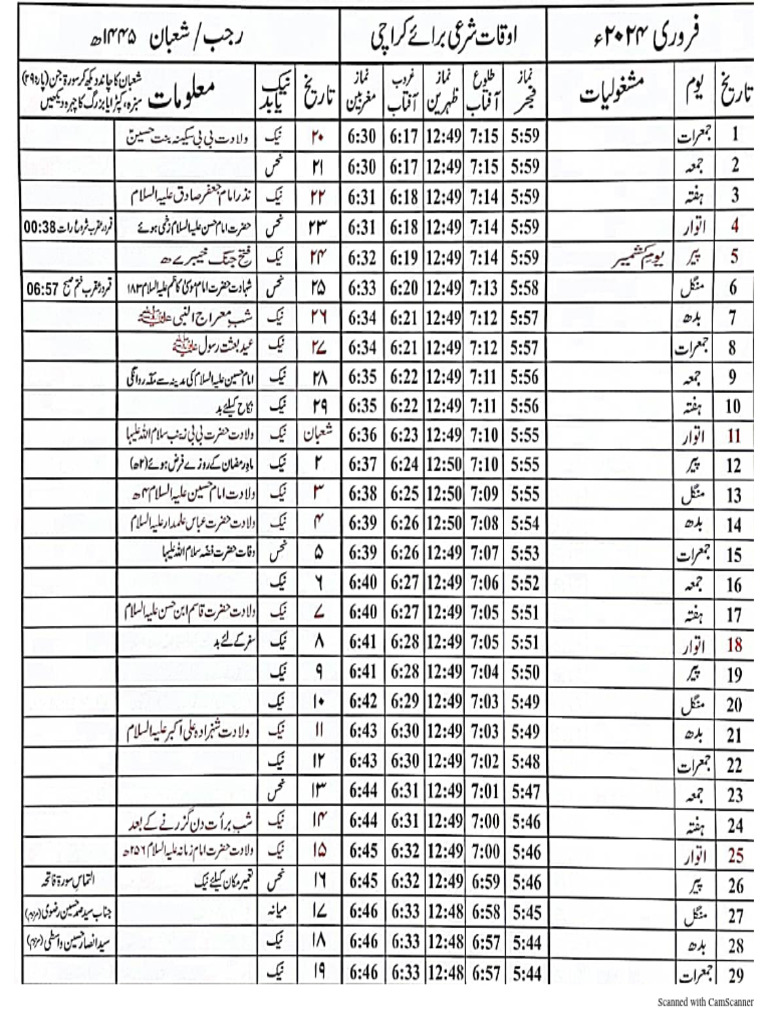 فروری ۲۰۲۴ء اوقات شرعی برائے کراچی رجب/شعبان ۱۴۴۵ھ
تاریخ یوم مشغولیات نماز فجر طلوع آفتاب نماز ظہرین غروب آفتاب نماز مغربین تاریخ نیک یا بد معلومات شعبان کا چاند دیکھ کر سورۃ جن (پارہ ۲۹) سبزہ، کپڑا یا بزرگ کا چہرہ دیکھیں
1 جمعرات 5:59 7:15 12:49 6:17 6:30 ۲۰ نیک ولادت بی بی سکینہ بنت حسینؑ
2 جمعہ 5:59 7:15 12:49 6:17 6:30 ۲۱ نحس
3 ہفتہ 5:59 7:14 12:49 6:18 6:31 ۲۲ نیک نذر امام جعفر صادق علیہ السلام
4 اتوار 5:59 7:14 12:49 6:18 6:31 ۲۳ نحس حضرت امام حسن علیہ السلام زخمی ہوئے قمر در عقرب شروع رات 00:38
5 پیر یوم کشمیر 5:59 7:14 12:49 6:19 6:32 ۲۴ نیک فتح جنگ خیبر ۷ھ
6 منگل 5:58 7:13 12:49 6:20 6:33 ۲۵ نحس شہادت حضرت امام موسیٰ کاظم علیہ السلام ۱۸۳ قمر در عقرب ختم صبح 06:57
7 بدھ 5:57 7:12 12:49 6:21 6:34 ۲۶ نیک شب معراج النبی ﷺ
8 جمعرات 5:57 7:12 12:49 6:21 6:34 ۲۷ نیک عید بعثت رسول ﷺ
9 جمعہ 5:56 7:11 12:49 6:22 6:35 ۲۸ نیک امام حسین علیہ السلام کی مدینہ سے مکہ روانگی
10 ہفتہ 5:56 7:11 12:49 6:22 6:35 ۲۹ نیک نکاح کیلئے بد
11 اتوار 5:55 7:10 12:49 6:23 6:36 شعبان نیک ولادت حضرت بی بی زینب سلام اللہ علیہا
12 پیر 5:55 7:10 12:50 6:24 6:37 ۲ نیک ماہ رمضان کے روزے فرض ہوئے (۲ھ)
13 منگل 5:55 7:09 12:50 6:25 6:38 ۳ نیک ولادت امام حسین علیہ السلام ۴ھ
14 بدھ 5:54 7:08 12:50 6:26 6:39 ۴ نیک ولادت حضرت عباس علمدار علیہ السلام
15 جمعرات 5:53 7:07 12:49 6:26 6:39 ۵ نحس وفات حضرت فضہ سلام اللہ علیہا
16 جمعہ 5:52 7:06 12:49 6:27 6:40 ۶ نیک
17 ہفتہ 5:51 7:05 12:49 6:27 6:40 ۷ نیک ولادت حضرت قاسم ابن حسن علیہ السلام
18 اتوار 5:51 7:05 12:49 6:28 6:41 ۸ نیک سفر کے لئے بد
19 پیر 5:50 7:04 12:49 6:28 6:41 ۹ نیک
20 منگل 5:49 7:03 12:49 6:29 6:42 ۱۰ نیک
21 بدھ 5:49 7:03 12:49 6:30 6:43 ۱۱ نیک ولادت شہزادہ علی اکبر علیہ السلام
22 جمعرات 5:48 7:02 12:49 6:30 6:43 ۱۲ نیک
23 جمعہ 5:47 7:01 12:49 6:31 6:44 ۱۳ نحس
24 ہفتہ 5:46 7:00 12:49 6:31 6:44 ۱۴ نیک شب برأت دن گزرنے کے بعد
25 اتوار 5:46 7:00 12:49 6:32 6:45 ۱۵ نیک ولادت حضرت امام زمانہ علیہ السلام ۲۵۶ھ
26 پیر 5:46 6:59 12:49 6:32 6:45 ۱۶ نحس تعمیر مکان کیلئے نیک التماس سورۃ فاتحہ
27 منگل 5:45 6:58 12:48 6:33 6:46 ۱۷ میانہ جناب سید محمد حسین رضوی (مرحوم)
28 بدھ 5:44 6:57 12:48 6:33 6:46 ۱۸ نیک سید انصار حسین واسطی (مرحوم)
29 جمعرات 5:44 6:57 12:48 6:33 6:46 ۱۹ نیک
Scanned with CamScanner